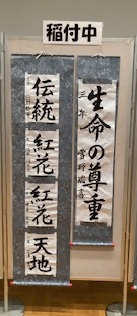 稲付中
生命の尊重
三年
伝統
紅花
紅花
天地